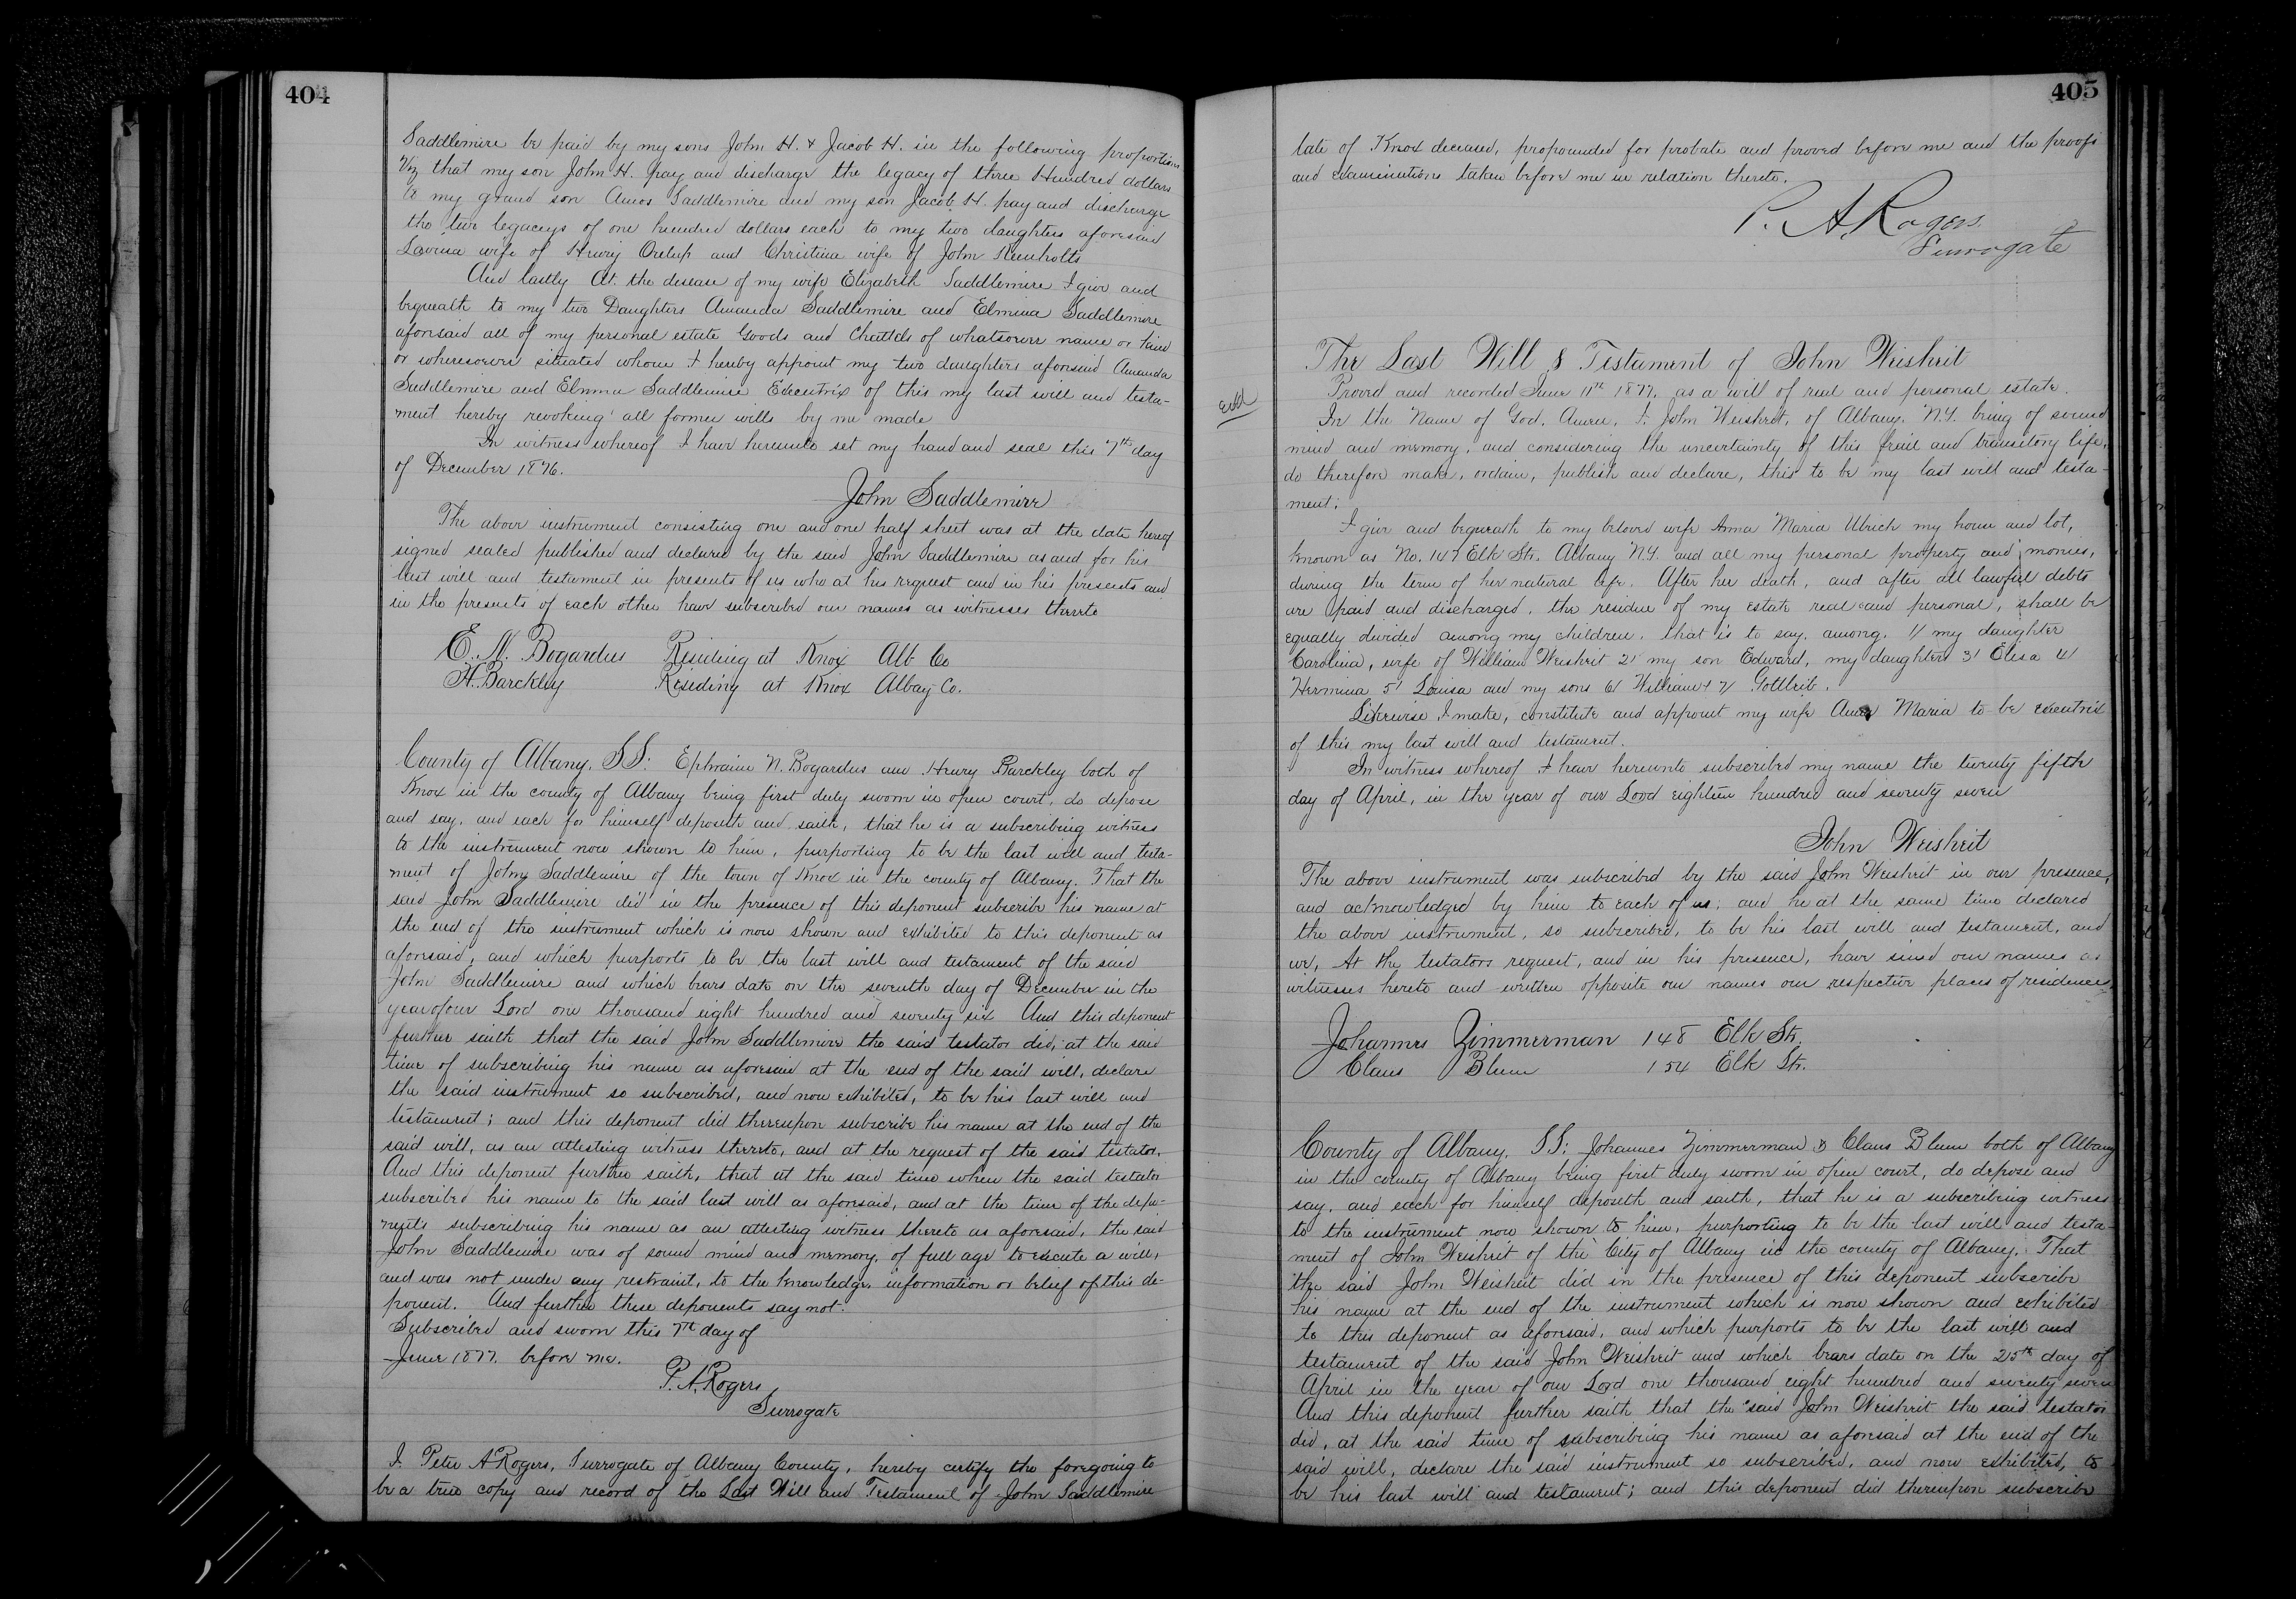 404
Saddlemire be paid by my sons John H. & Jacob H. in the following proportions
Viz that my son John H. pay and discharge the legacy of three Hundred dollars
to my grand son Amos Saddlemire and my son Jacob H. pay and discharge
the two legacys of one hundred dollars each to my two daughters aforesaid
Lavina wife of Henry Orelup and Christina wife of John
And lastly At the desease of my wife Elizabeth Saddlemire I give and
bequeath to my two Daughters Amanda Saddlemire and Elmina Saddlemire
aforesaid all of my personal estate Goods and Chattels of whatsoever name or kind
or wheresoever situated whome I hereby appoint my two daughters aforesaid Amanda
Saddlemire and Elmina Saddlemire Executrix of this my last will and testa-
ment hereby revoking all former wills by me made
In witness whereof I have hereunto set my hand and seal this 7th day
of December 1876.
John Saddlemire
The above instrument consisting one and one half sheet was at the date hereof
signed sealed published and declared by the said John Saddlemire as and for his
last will and testament in presents of us who at his request and in his presents and
in the presents of each other have subscribed our names as witnesses thereto
E. N. Bogardus Residing at Knox Alb Co
H. Barckley Residing at Knox Albay Co.
County of Albany, SS: Ephraim N. Bogardus and Henry Barckley both of
Knox in the county of Albany being first duly sworn in open court, do depose
and say, and each for himself deposeth and saith, that he is a subscribing witness
to the instrument now shown to him, purporting to be the last will and testa-
ment of John Saddlemire of the town of Knox in the county of Albany. That the
said John Saddlemire did in the presence of this deponent subscribe his name at
the end of the instrument which is now shown and exhibited to this deponent as
aforesaid, and which purports to be the last will and testament of the said
John Saddlemire and which bears date on the seventh day of December in the
year of our Lord one thousand eight hundred and seventy six And this deponent
further saith that the said John Saddlemire the said testator did, at the said
time of subscribing his name as aforesaid at the end of the said will, declare
the said instrument so subscribed, and now exhibited, to be his last will and
testament; and this deponent did thereupon subscribe his name at the end of the
said will, as an attesting witness thereto, and at the request of the said testator.
And this deponent further saith, that at the said time when the said testator
subscribed his name to the said last will as aforesaid, and at the time of the depo-
nents subscribing his name as an attesting witness thereto as aforesaid, the said
John Saddlemire was of sound mind and memory, of full age to execute a will,
and was not under any restraint, to the knowledge, information or belief of this de-
ponent. And further these deponents say not.
Subscribed and sworn this 7th day of
June 1877. before me.
P. A. Rogers
Surrogate
I. Peter A Rogers, Surrogate of Albany County, hereby certify the foregoing to
be a true copy and record of the Last Will and Testament of John Saddlemire
405
late of Knox deceased, propounded for probate and proved before me and the proofs
and examinations taken before me in relation thereto.
P. A. Rogers
Surrogate
The Last Will & Testament of John Weisheit
Proved and recorded June 11th 1877. as a will of real and personal estate.
In the Name of God, Amen, I. John Weisheit, of Albany, N.Y. being of sound
mind and memory, and considering the uncertainty of this frail and transitory life,
do therefore make, ordain, publish and declare, this to be my last will and testa-
ment:
I give and bequeath to my beloved wife Anna Maria Ulrich my house and lot,
known as No. 147 Elk Str. Albany N.Y. and all my personal property and monies,
during the term of her natural life. After her death, and after all lawful debts
are paid and discharged, the residue of my estate real and personal, shall be
equally divided among my children, that is to say, among, 1/ my daughter
Carolina, wife of William Weisheit 2/ my son Edward, my daughters 3/ Elisa 4/
Hermina 5/ Louisa and my sons 6/ William & 7/ Gottlieb.
Likewise I make, constitute and appoint my wife Anna Maria to be executrix
of this my last will and testament.
In witness whereof I have hereunto subscribed my name the twenty fifth
day of April, in the year of our Lord eighteen hundred and seventy seven
John Weisheit
The above instrument was subscribed by the said John Weisheit in our presence,
and acknowledged by him to each of us; and he at the same time declared
the above instrument, so subscribed, to be his last will and testament, and
we, At the testators request, and in his presence, have signed our names as
witnesses hereto and written opposite our names our respective places of residence.
Johannes Zimmerman 148 Elk Str.
Claus Blum 154 Elk Str.
County of Albany, SS: Johannes Zimmerman & Claus Blum both of Albany
in the county of Albany being first duly sworn in open court, do depose and
say, and each for himself deposeth and saith, that he is a subscribing witness
to the instrument now shown to him, purporting to be the last will and testa-
ment of John Weisheit of the City of Albany in the county of Albany. That
the said John Weisheit did in the presence of this deponent subscribe
his name at the end of the instrument which is now shown and exhibited
to this deponent as aforesaid, and which purports to be the last will and
testament of the said John Weisheit and which bears date on the 25th day of
April in the year of our Lord one thousand eight hundred and seventy seven
And this deponent further saith that the said John Weisheit the said testator
did, at the said time of subscribing his name as aforesaid at the end of the
said will, declare the said instrument so subscribed, and now exhibited, to
be his last will and testament; and this deponent did thereupon subscribe